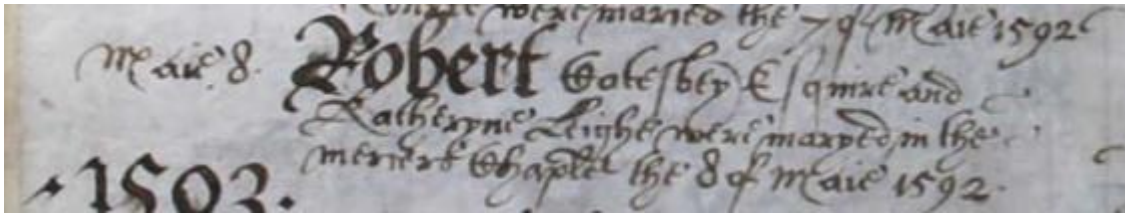 were maried the 7 of Maie 1592
Maie 8. Robert Catesbey Esquire and
Katheryne Leighe were maryed in the
mercers Chappell the 8 of Maie 1592.
1593.